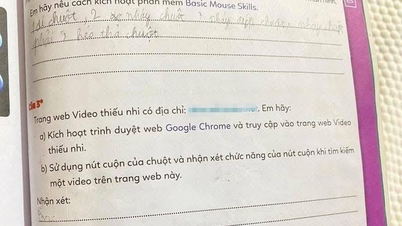 Em hãy nêu cách kích hoạt phần mềm Basic Mouse Skills.
chuột, 2
chuột
Câu 3*
Trang web Video thiếu nhi có địa chỉ: . Em hãy:
a) Kích hoạt trình duyệt web Google Chrome và truy cập vào trang web Video
thiếu nhi.
b) Sử dụng nút cuộn của chuột và nhận xét chức năng của nút cuộn khi tìm kiếm
một video trên trang web này.
Nhận xét: